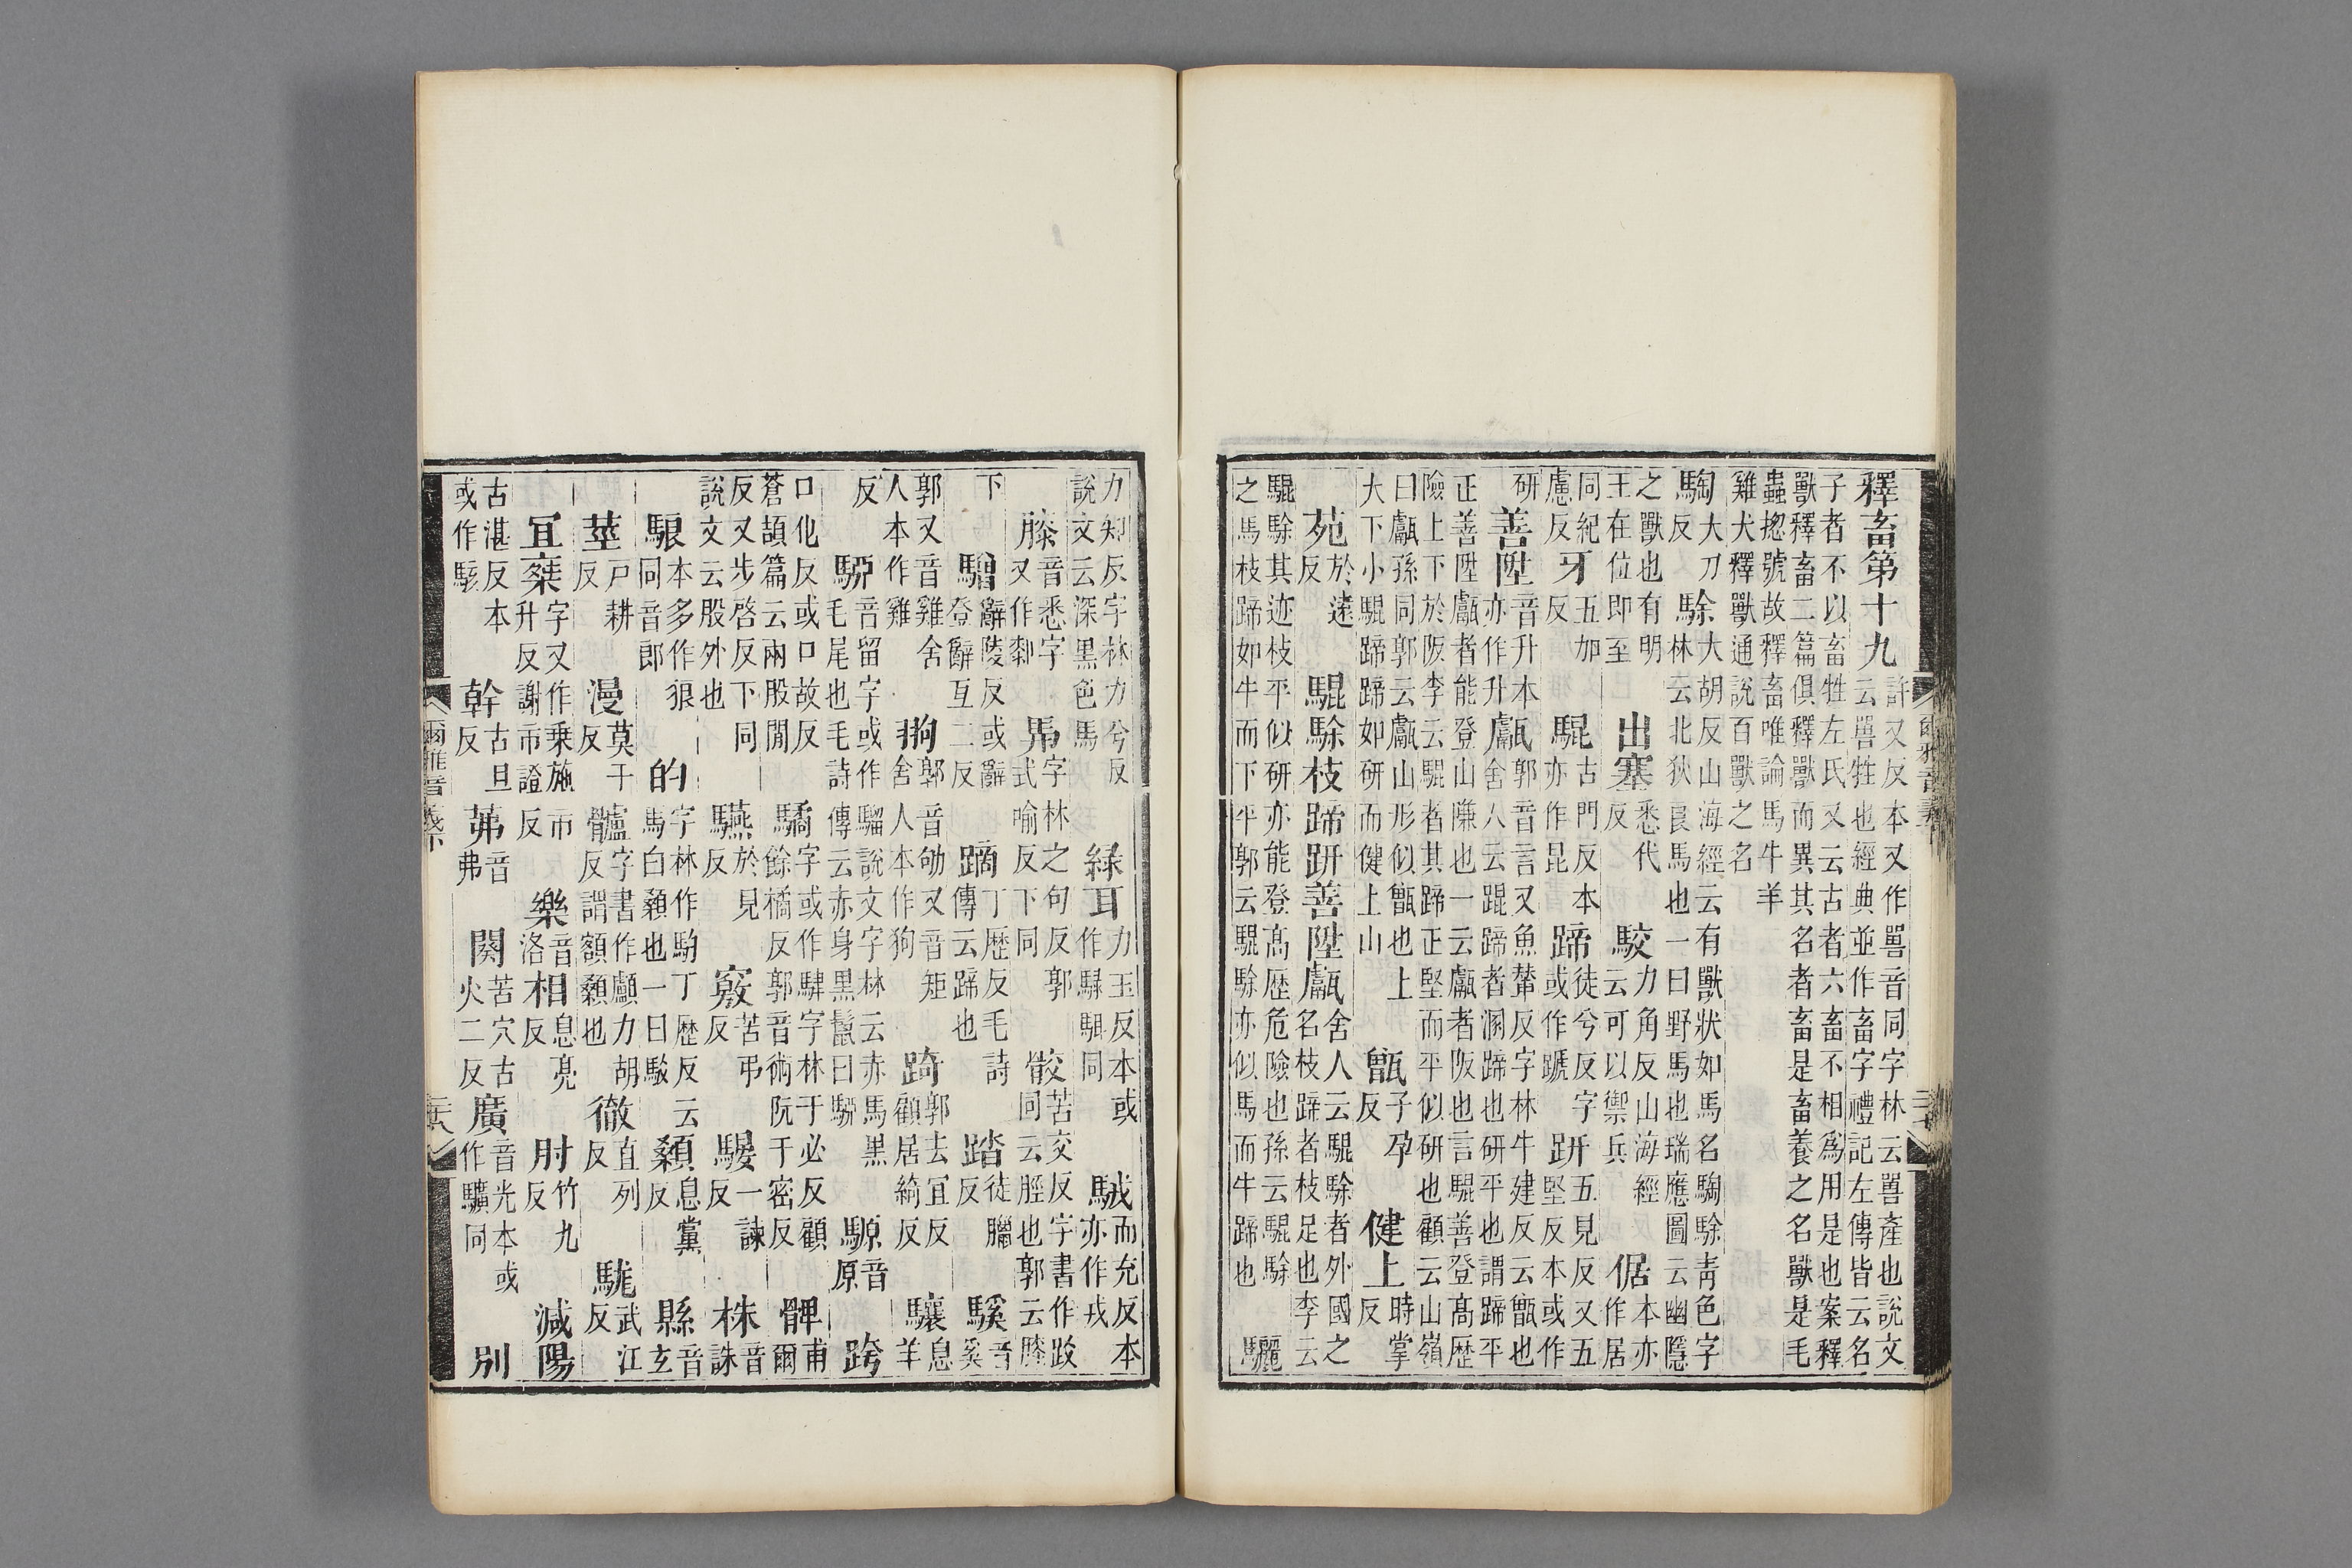 釋畜第十九 許又反本又作嘼音同字林云嘼產也說文云嘼牲也經典並作畜字禮記左傳皆云名
子者不以畜牲左氏又云古者六畜不相爲用是也案釋獸釋畜二篇俱釋獸而異其名者畜是畜養之名獸是毛
蟲揔號故釋畜唯論馬牛羊雞犬釋獸通說百獸之名
騊 大刀反 駼 大胡反山海經云有獸狀如馬名騊駼青色字林云北狄良馬也一曰野馬也瑞應圖云幽隱
之獸也有明王在位即至 出塞 悉代反 駮 力角反山海經云可以禦兵 倨 本亦作居
同紀慮反 牙 五加反 騉 古門反本亦作昆 蹄 徒兮反字或作蹏 趼 五見反又五堅反本或作
研 善陞 音升本亦作升 甗 郭音言又魚輦反字林牛建反云甑也舍人云騉蹄者溷蹄也研平也謂蹄平
正善陞甗者能登山隒也一云甗者阪也言騉善登高歷險上下於阪李云騉者其蹄正堅而平似研也顧云山嶺
曰甗孫同郭云甗山形似甑也上大下小騉蹄蹄如研而健上山 甑 子孕反 健上 時掌反
苑 於遠反 騉駼枝蹄趼善陞甗 舍人云騉駼者外國之名枝蹄者枝足也李云
騉駼其迹枝平似研亦能登高歷危險也孫云騉駼之馬枝蹄如牛而下平郭云騉駼亦似馬而牛蹄也 驪
力知反字林力兮反說文云深黑色馬 緑耳 力玉反本或作騄駬同 駥 而充反本亦作戎
膝 音悉字又作厀 馵 字林之句反郭式喻反下同 骹 苦交反字書作跤同云脛也郭云膝
下 驓 辭陵反或辭登辭互二反 蹢 丁歷反毛詩傳云蹄也 踏 徒臘反 騱 音奚
郭又音雞舍人本作雞 翑 郭音劬又音矩舍人本作狗 踦 郭去宜反顧居綺反 驤 息羊
反 駵 音留字或作騮說文字林云赤馬黑毛尾也毛詩傳云亦身黑鬣曰駵 騵 音原 跨
口化反或口故反蒼頡篇云兩股閒 驈 字或作驈字林于必反顧餘橘反郭音術阮于密反 髀 甫爾
反又步啓反下同說文云股外也 驠 於見反 竅 苦弔反 騴 一諫反 株 音誅
駺 本多作狼同音郎 的 字林作馰丁歷反云馬白顙也一曰駿 顙 息黨反 縣 音玄
莖 戶耕反 漫 莫干反 髗 字書作顱力胡反謂額顙也 徹 直列反 駹 武江反
冝椉 字又作乗施市升反謝市證反 樂 音洛 相 息亮反 肘 竹九反 減陽
古湛反本或作駭 幹 古旦反 茀 音弗 闋 苦穴古火二反 廣 音光本或作驥同 別
爾雅音義下